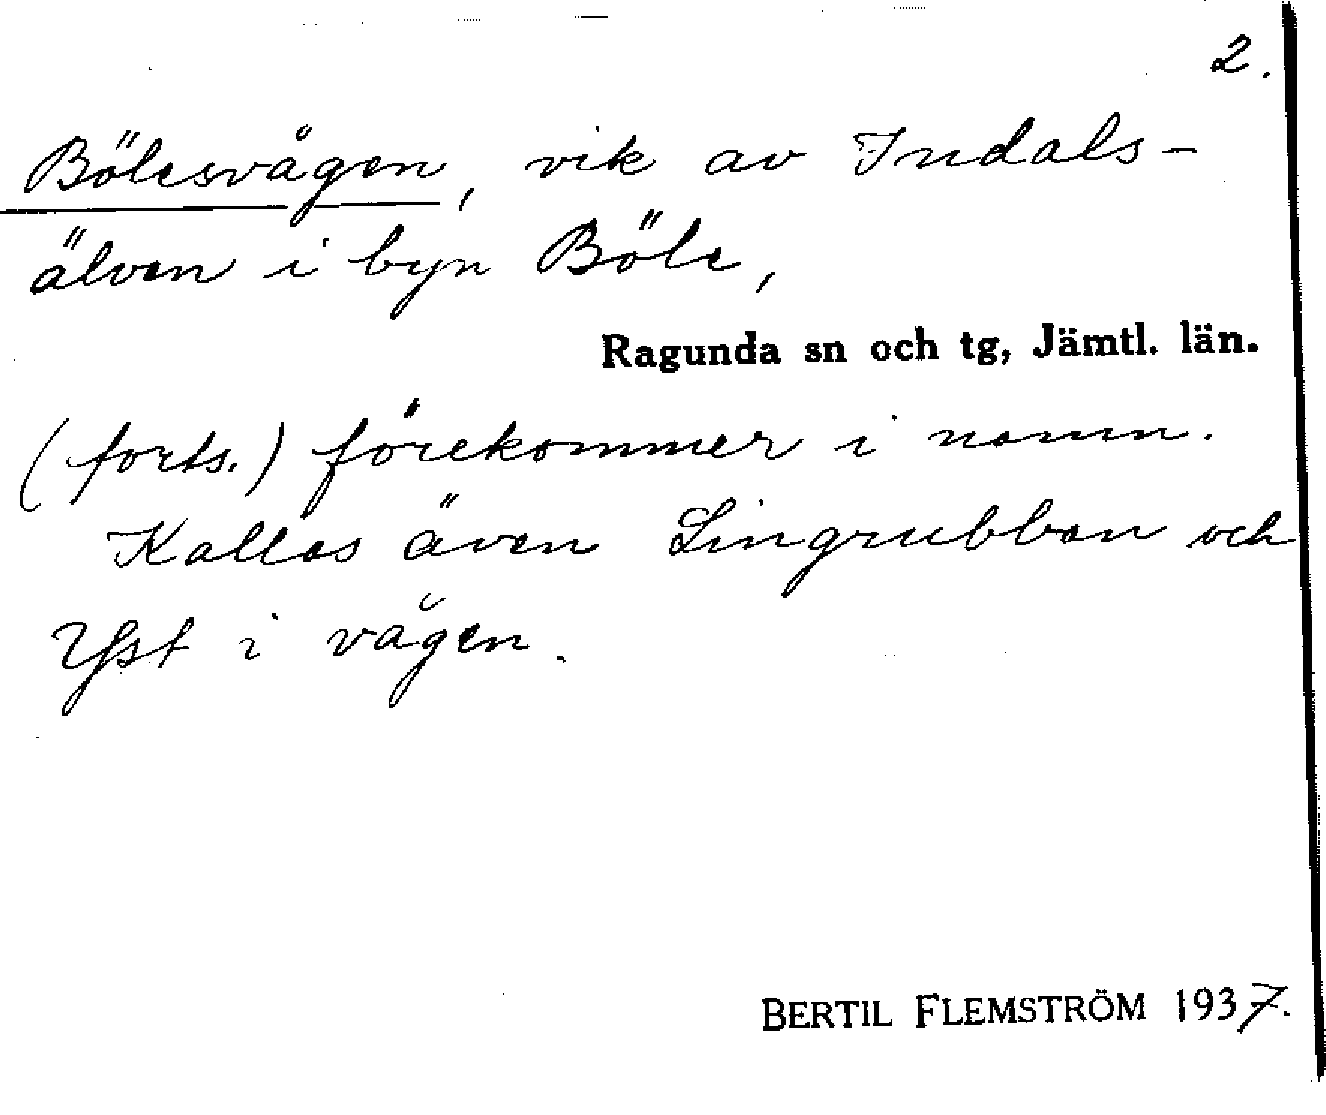 2.
Bölesvågen, vik av Indals-
älven i byn Böle,
Ragunda sn och tg, Jämtl. län.
(forts.) förekommer i namn.
Kallas även Lingrubban och
Yst i vågen.
BERTIL FLEMSTRÖM 1937.